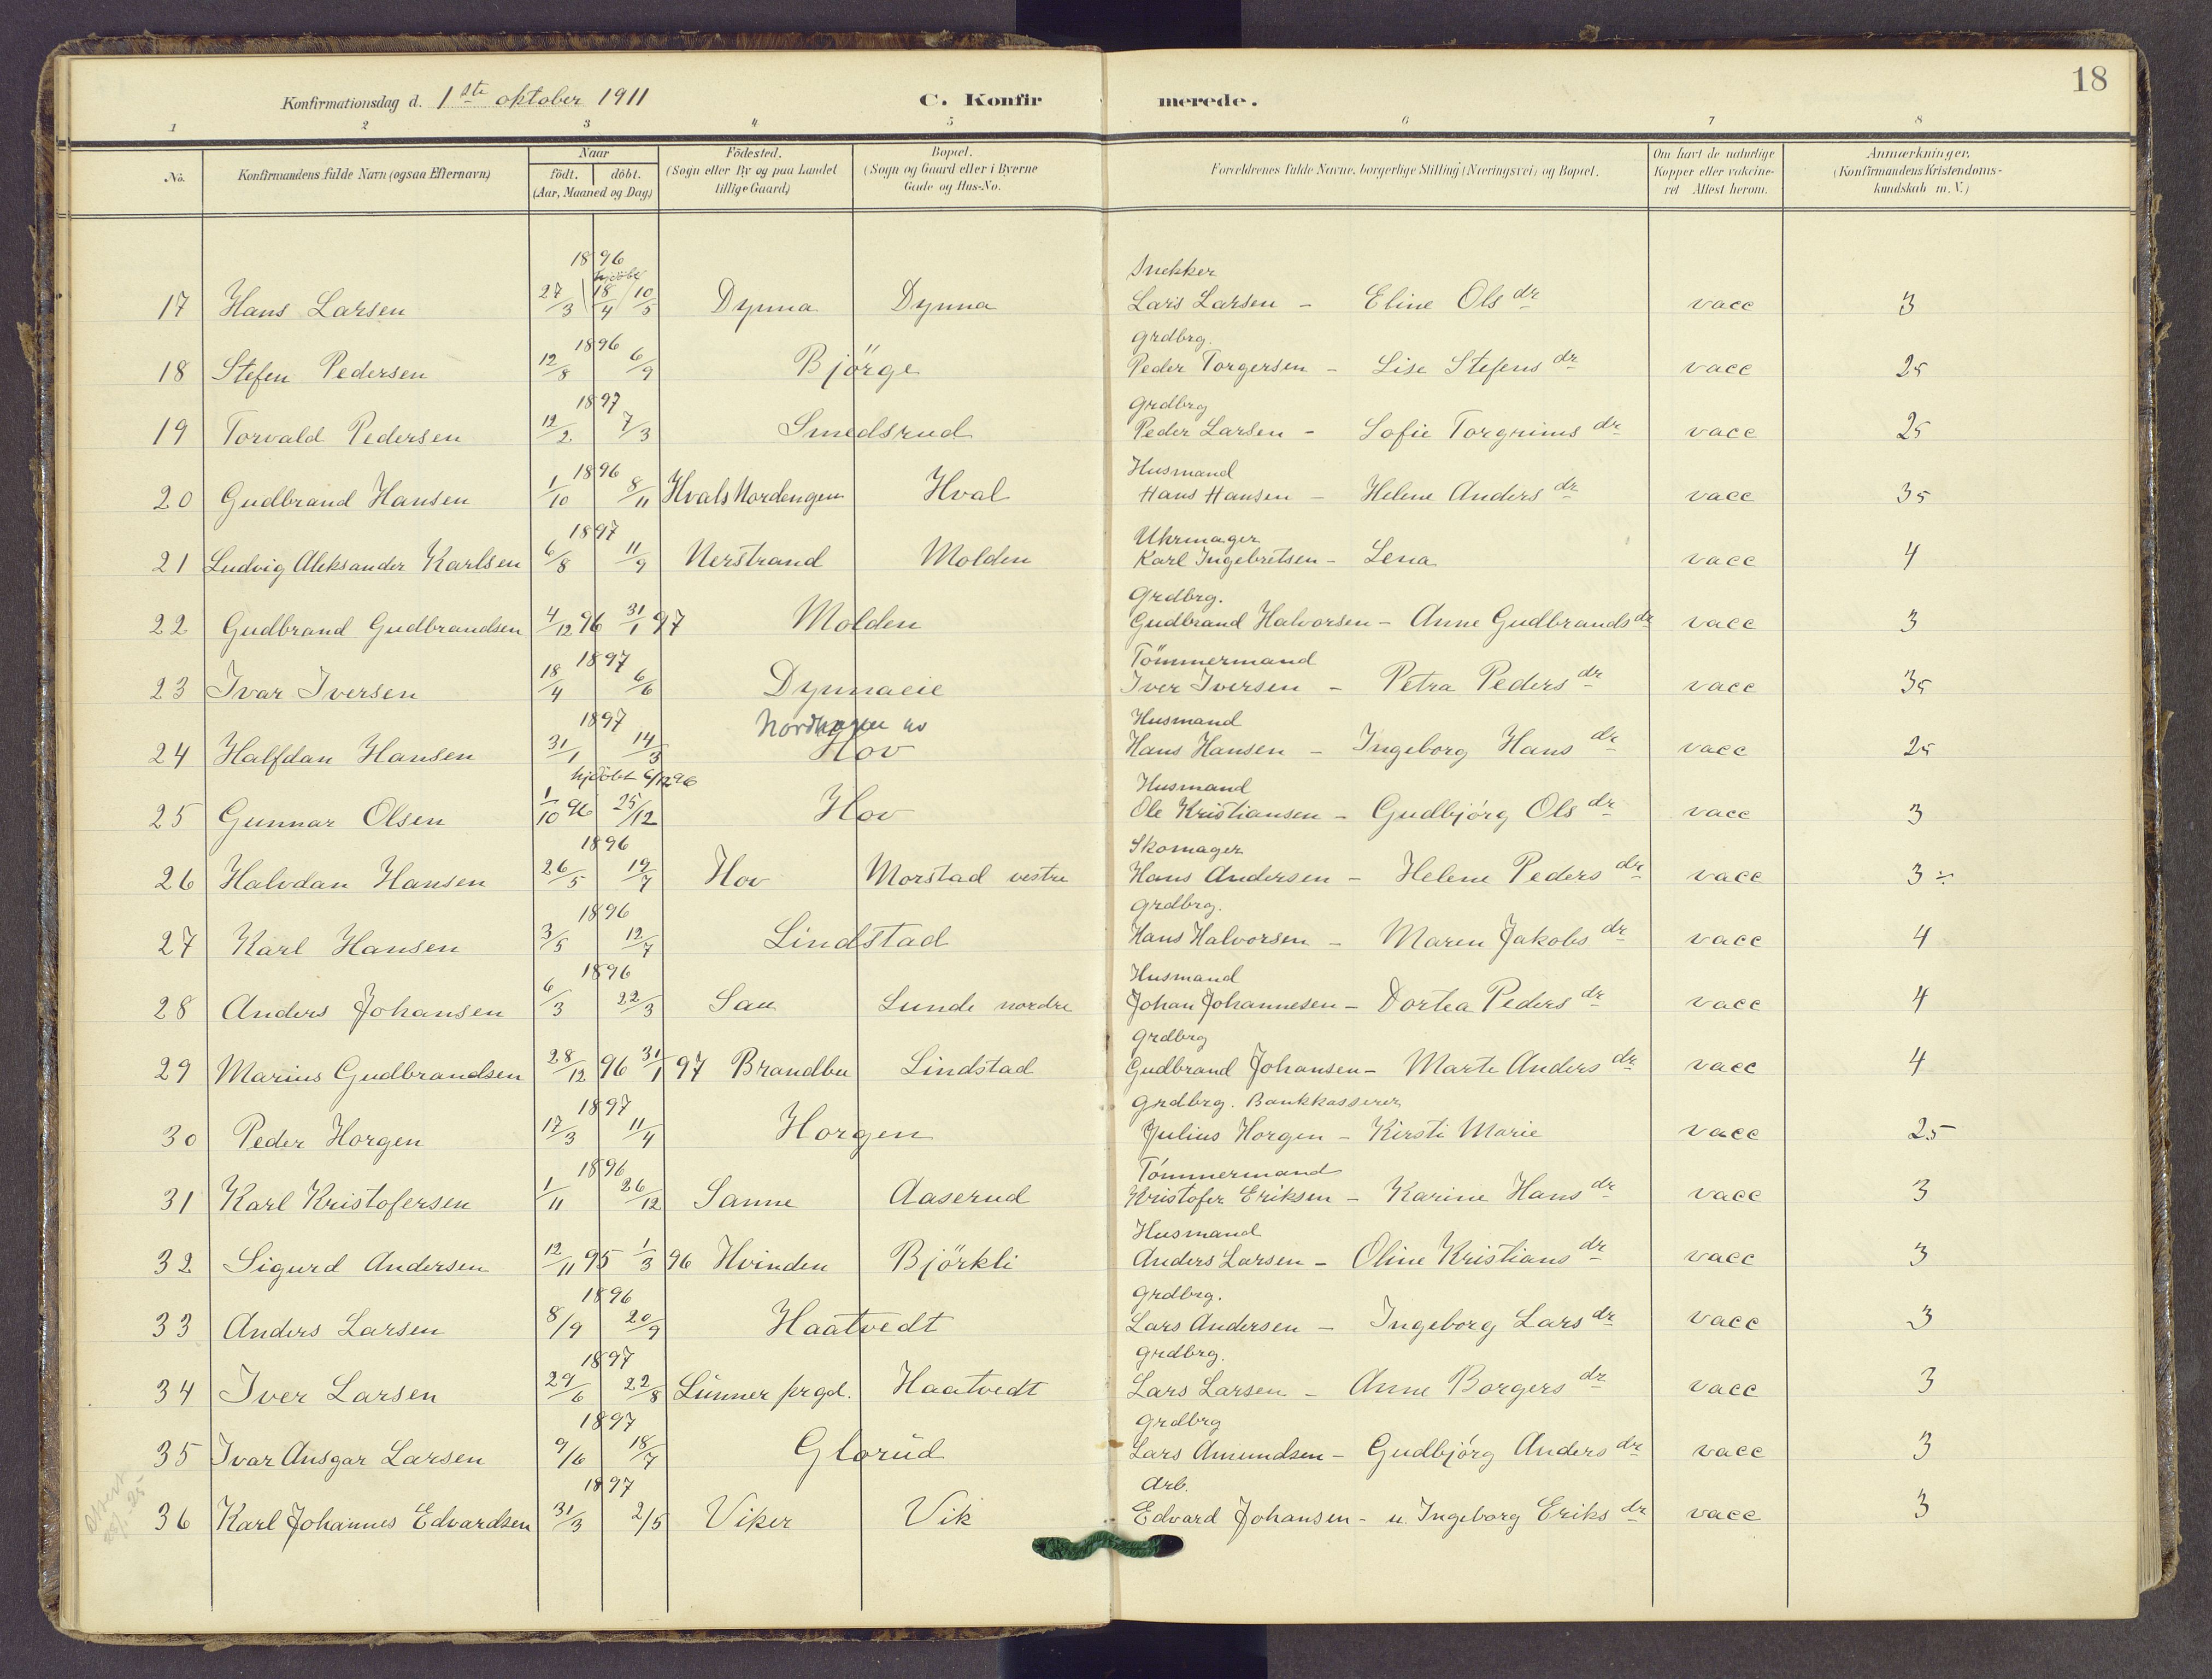 18
Konfirmationsdag d. 1ste oktober 1911 C. Konfirmerede.
1 2 3 4 5 6 7 8
No. Konfirmandens fulde Navn (ogsaa Efternavn) Naar födt. döbt. (Aar, Maaned og Dag) Födested. (Sogn eller By og paa Landet tillige Gaard) Bopæl. (Sogn og Gaard eller i Byerne Gade og Hus-No. Forældrenes fulde Navne, borgerlige Stilling (Næringsvei) og Bopæl. Om havt de naturlige Kopper eller vakcineret Attest herom. Anmærkninger. (Konfirmandens Kristendomskundskab m. V.)
1896 hjdöbt Snekker
17 Hans Larsen 27/3 18/4 10/5 Dynna Dynna Lars Larsen - Eline Olsdr vacc 3
1896 Grdbrg.
18 Stefen Pedersen 12/8 6/9 Björge Peder Torgersen - Lise Stefensdr vacc 25
1897 Grdbrg
19 Torvald Pedersen 12/2 7/3 Smedsrud Peder Larsen - Sofie Torgrimsdr vacc 25
1896 Husmand
20 Gudbrand Hansen 1/10 8/11 Hvals Nordengen Hval Hans Hansen - Helene Andersdr vacc 35
1897 Uhrmager
21 Ludvig Aleksander Karlsen 6/8 11/9 Nerstrand Molden Karl Ingebretsen - Lena vacc 4
Grdbrg.
22 Gudbrand Gudbrandsen 4/12 96 31/1 97 Molden Gudbrand Halvorsen - Anne Gudbrandsdr vacc 3
1897 Tömmermand
23 Ivar Iversen 18/4 6/6 Dynnaeie Iver Iversen - Petra Pedersdr vacc 35
1897 Nordhagen Husmand
24 Halfdan Hansen 31/1 14/3 Hov Hans Hansen - Ingeborg Hansdr vacc 25
hjdöbt 6/12 96 Husmand
25 Gunnar Olsen 1/10 96 25/12 Hov Ole Kristiansen - Gudbjörg Olsdr vacc 3
1896 Skomager
26 Halvdan Hansen 26/5 19/7 Hov Morstad vestre Hans Andersen - Helene Pedersdr vacc 3 ÷
1896 Grdbrg.
27 Karl Hansen 3/5 12/7 Lindstad Hans Halvorsen - Maren Jakobsdr vacc 4
1896 Husmand
28 Anders Johansen 6/3 22/3 Sau Lunde nordre Johan Johannesen - Dortea Pedersdr vacc 4
Grdbrg
29 Marius Gudbrandsen 28/12 96 31/1 97 Brandbu Lindstad Gudbrand Johansen - Marte Andersdr vacc 4
1897 Grdbrg. Bankkasserer
30 Peder Horgen 17/3 11/4 Horgen Julius Horgen - Kirsti Marie vacc 25
1896 Tömmermand
31 Karl Kristofersen 1/11 26/12 Sanne Aaserud Kristofer Eriksen - Karine Hansdr vacc 3
Husmand
32 Sigurd Andersen 12/11 95 1/3 96 Hvinden Björkli Anders Larsen - Oline Kristiansdr vacc 3
1896 Grdbrg.
33 Anders Larsen 8/9 20/9 Haatvedt Lars Andersen - Ingeborg Larsdr vacc 3
1897 Grdbrg.
34 Iver Larsen 29/6 22/8 Lunner prgd. Haatvedt Lars Larsen - Anne Borgersdr vacc 3
1897 Grdbrg
35 Ivar Ansgar Larsen 9/6 18/7 Glorud Lars Amundsen - Gudbjörg Andersdr vacc 3
1897 Arb.
36 Karl Johannes Edvardsen 31/3 2/5 Viker Vik Edvard Johansen - u. Ingeborg Eriksdr vacc 3